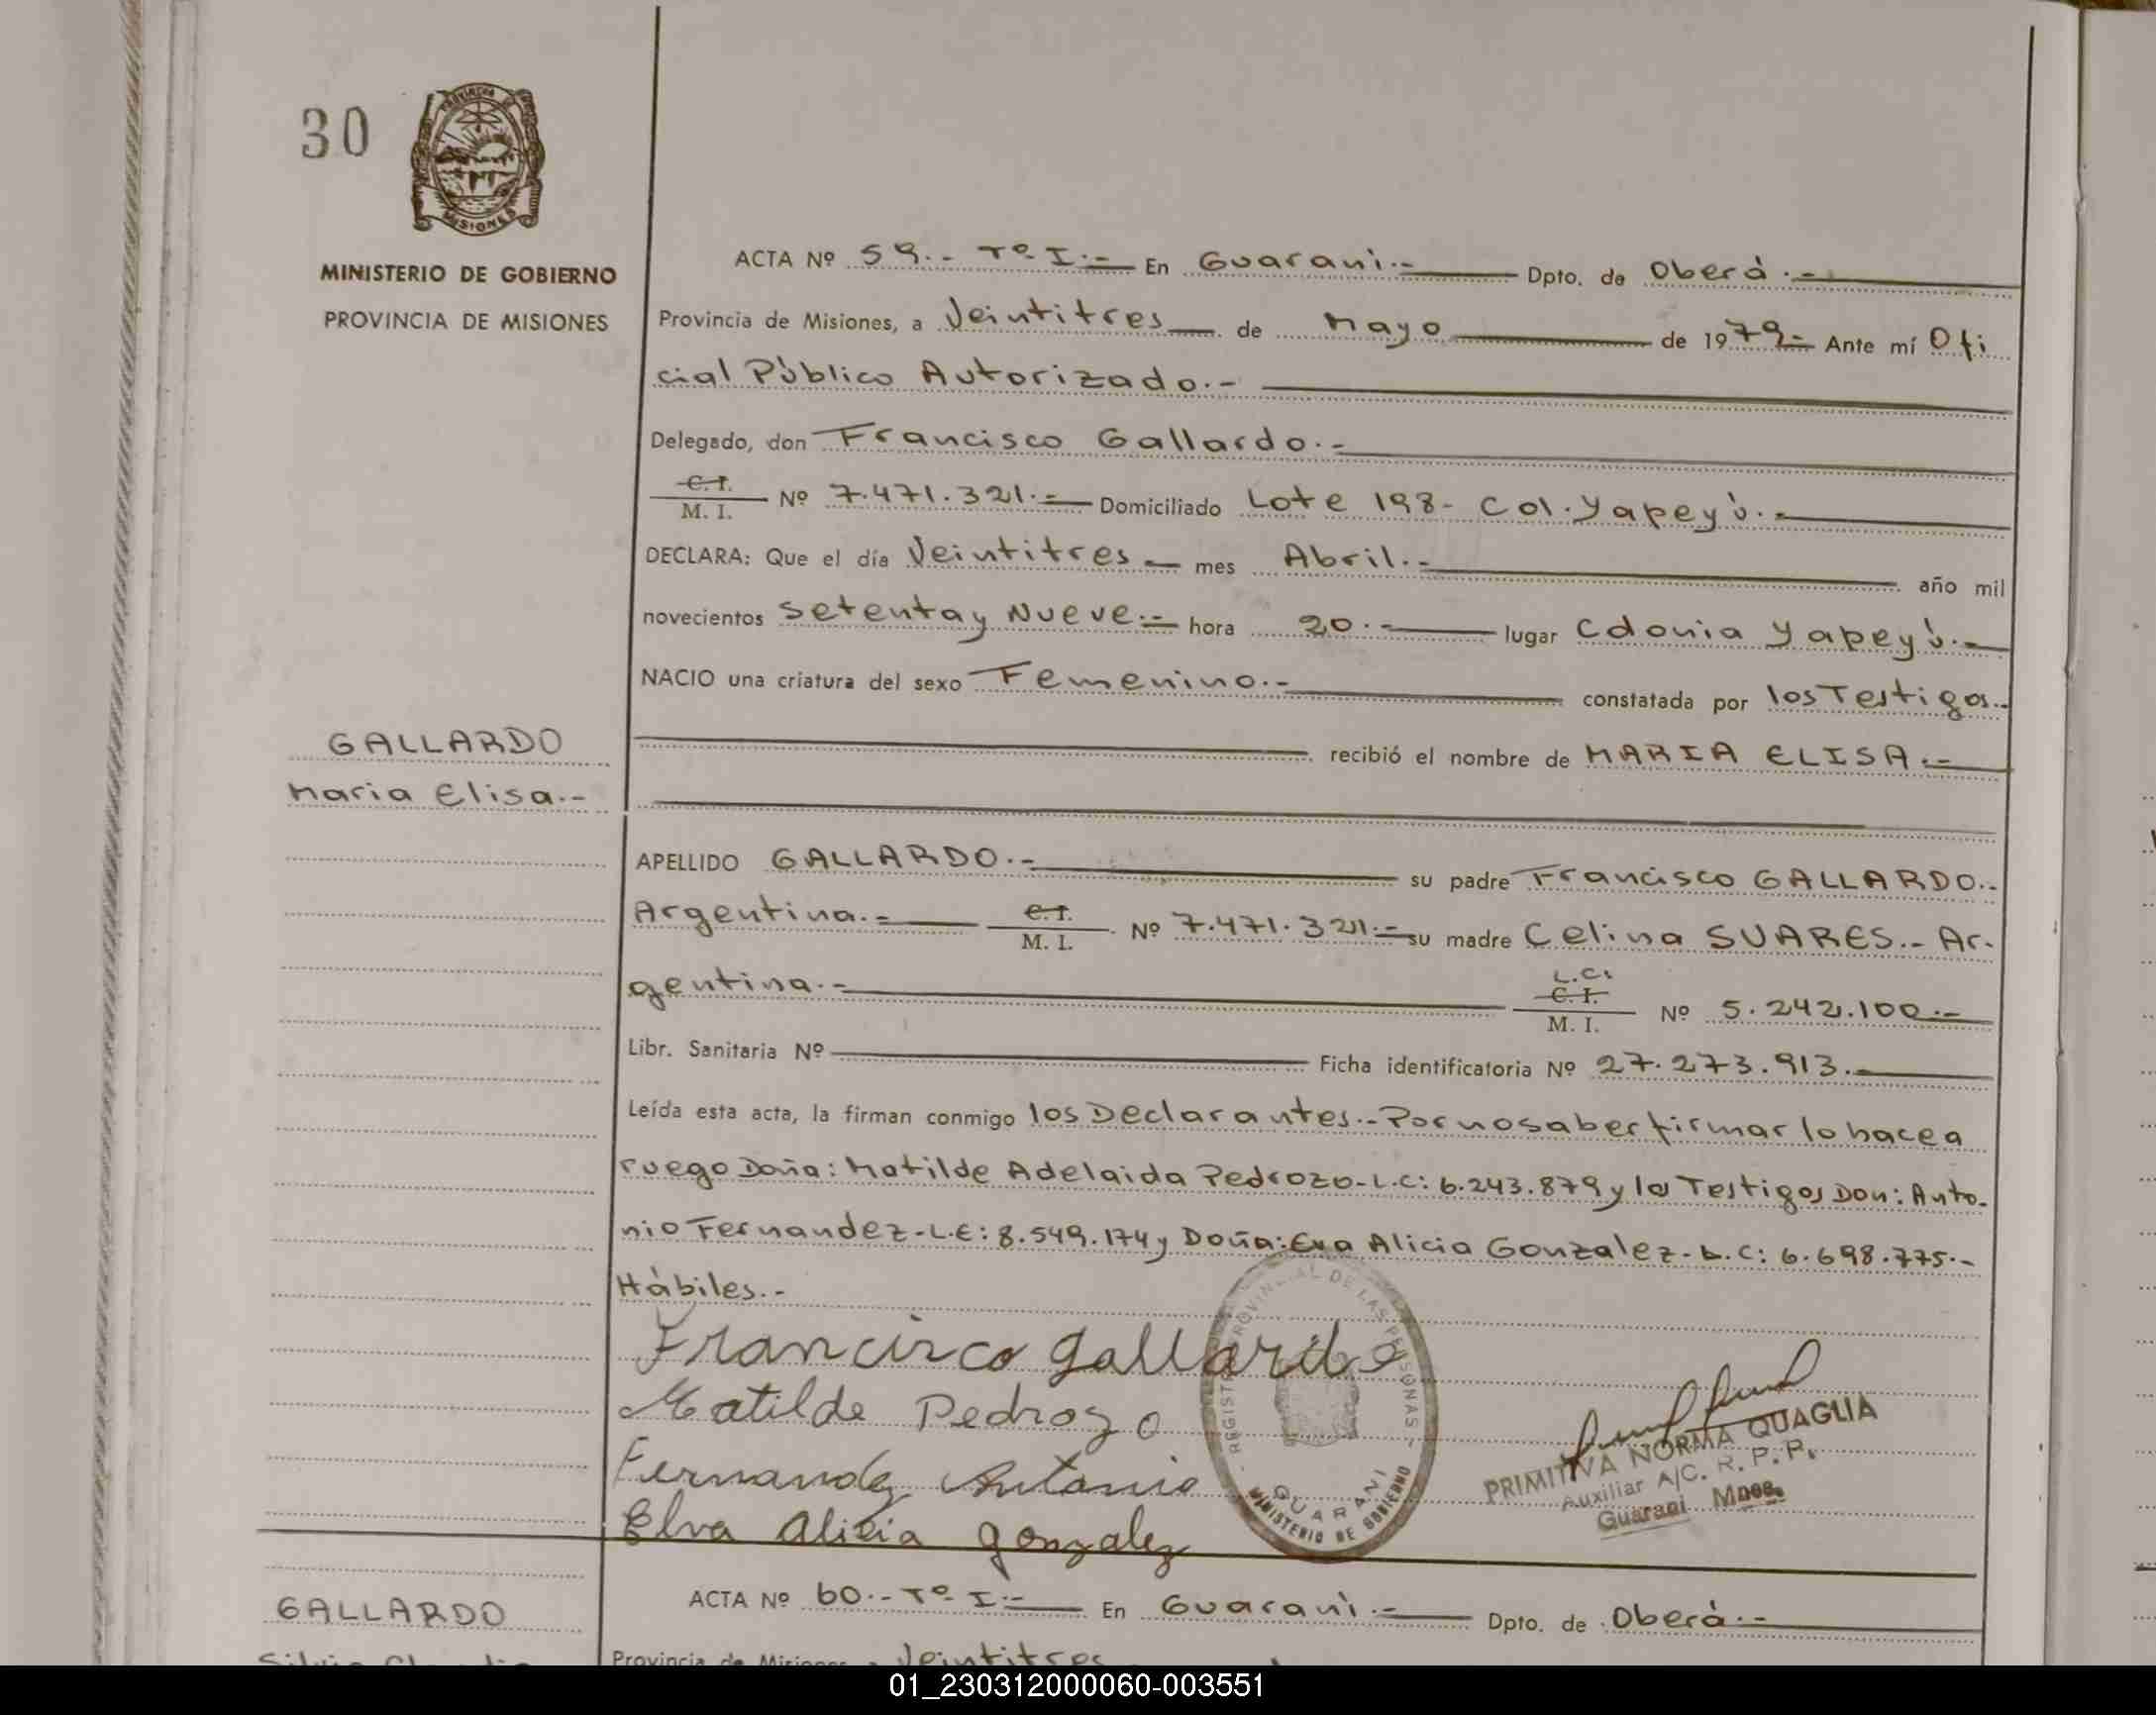 30
PROVINCIA DE
MISIONES
MINISTERIO DE GOBIERNO
PROVINCIA DE MISIONES
ACTA Nº 59.- Tº I.- En Guaraní.- Dpto. de Oberá.-
Provincia de Misiones, a Veintitres de Mayo de 1979.- Ante mí Ofi
cial Público Autorizado.-
Delegado, don Francisco Gallardo.-
C. I.
M. I. Nº 7.471.321.- Domiciliado Lote 198- Col. Yapeyú.-
DECLARA: Que el día Veintitres mes Abril.- año mil
novecientos Setenta y Nueve.- hora 20.- lugar Colonia Yapeyú.-
NACIO una criatura del sexo Femenino.- constatada por los Testigos.-
recibió el nombre de MARIA ELISA.-
GALLARDO
Maria Elisa.-
APELLIDO GALLARDO.- su padre Francisco GALLARDO.-
Argentina.- C. I. M. I. Nº 7.471.321.- su madre Celina SUARES.- Ar-
gentina.- L.C. C. I. M. I. Nº 5.242.100.-
Libr. Sanitaria Nº Ficha identificatoria Nº 27.273.913.-
Leída esta acta, la firman conmigo los Declarantes.- Por no saber firmar lo hace a
ruego Doña: Matilde Adelaida Pedrozo-L.C: 6.243.879 y los Testigos Don: Anto-
nio Fernandez-L.E: 8.549.174 y Doña: Elva Alicia Gonzalez-L.C: 6.698.775.-
Hábiles.-
Francisco Gallardo
Matilde Pedrozo
Fernandez Antonio
Elva Alicia Gonzalez
REGISTRO PROVINCIAL DE LAS PERSONAS
GUARANI
MINISTERIO DE GOBIERNO
PRIMITIVA NORMA QUAGLIA
Auxiliar A/C. R. P. P.
Guarani Mnes.
ACTA Nº 60.- Tº I.- En Guaraní.- Dpto. de Oberá.-
GALLARDO
Provincia de Misiones, a Veintitres
01_230312000060-003551